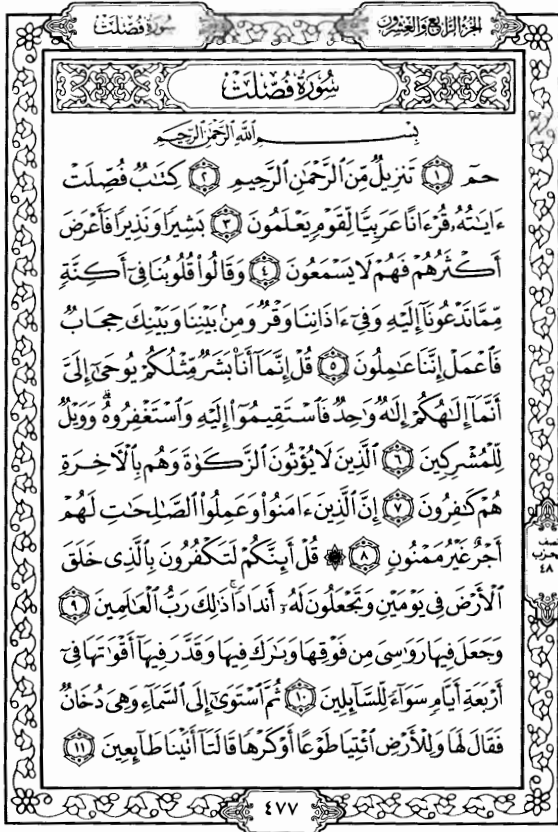 الجزء الرابع والعشرون سورة فصلت
سُورَةُ فُصِّلَتْ
بِسْمِ اللَّهِ الرَّحْمَٰنِ الرَّحِيمِ
حمٓ ۝١ تَنزِيلٌ مِّنَ ٱلرَّحْمَٰنِ ٱلرَّحِيمِ ۝٢ كِتَٰبٌ فُصِّلَتْ
ءَايَٰتُهُۥ قُرْءَانًا عَرَبِيًّا لِّقَوْمٍ يَعْلَمُونَ ۝٣ بَشِيرًا وَنَذِيرًا فَأَعْرَضَ
أَكْثَرُهُمْ فَهُمْ لَا يَسْمَعُونَ ۝٤ وَقَالُوا۟ قُلُوبُنَا فِىٓ أَكِنَّةٍ
مِّمَّا تَدْعُونَآ إِلَيْهِ وَفِىٓ ءَاذَانِنَا وَقْرٌ وَمِنۢ بَيْنِنَا وَبَيْنِكَ حِجَابٌ
فَٱعْمَلْ إِنَّنَا عَٰمِلُونَ ۝٥ قُلْ إِنَّمَآ أَنَا۠ بَشَرٌ مِّثْلُكُمْ يُوحَىٰٓ إِلَىَّ
أَنَّمَآ إِلَٰهُكُمْ إِلَٰهٌ وَٰحِدٌ فَٱسْتَقِيمُوٓا۟ إِلَيْهِ وَٱسْتَغْفِرُوهُ ۗ وَوَيْلٌ
لِّلْمُشْرِكِينَ ۝٦ ٱلَّذِينَ لَا يُؤْتُونَ ٱلزَّكَوٰةَ وَهُم بِٱلْءَاخِرَةِ
هُمْ كَٰفِرُونَ ۝٧ إِنَّ ٱلَّذِينَ ءَامَنُوا۟ وَعَمِلُوا۟ ٱلصَّٰلِحَٰتِ لَهُمْ
أَجْرٌ غَيْرُ مَمْنُونٍ ۝٨ ۞ قُلْ أَئِنَّكُمْ لَتَكْفُرُونَ بِٱلَّذِى خَلَقَ
ٱلْأَرْضَ فِى يَوْمَيْنِ وَتَجْعَلُونَ لَهُۥٓ أَندَادًا ۚ ذَٰلِكَ رَبُّ ٱلْعَٰلَمِينَ ۝٩
وَجَعَلَ فِيهَا رَوَٰسِىَ مِن فَوْقِهَا وَبَٰرَكَ فِيهَا وَقَدَّرَ فِيهَآ أَقْوَٰتَهَا فِىٓ
أَرْبَعَةِ أَيَّامٍ سَوَآءً لِّلسَّآئِلِينَ ۝١٠ ثُمَّ ٱسْتَوَىٰٓ إِلَى ٱلسَّمَآءِ وَهِىَ دُخَانٌ
فَقَالَ لَهَا وَلِلْأَرْضِ ٱئْتِيَا طَوْعًا أَوْ كَرْهًا قَالَتَآ أَتَيْنَا طَآئِعِينَ ۝١١
نصف
الحزب
٤٨
٤٧٧